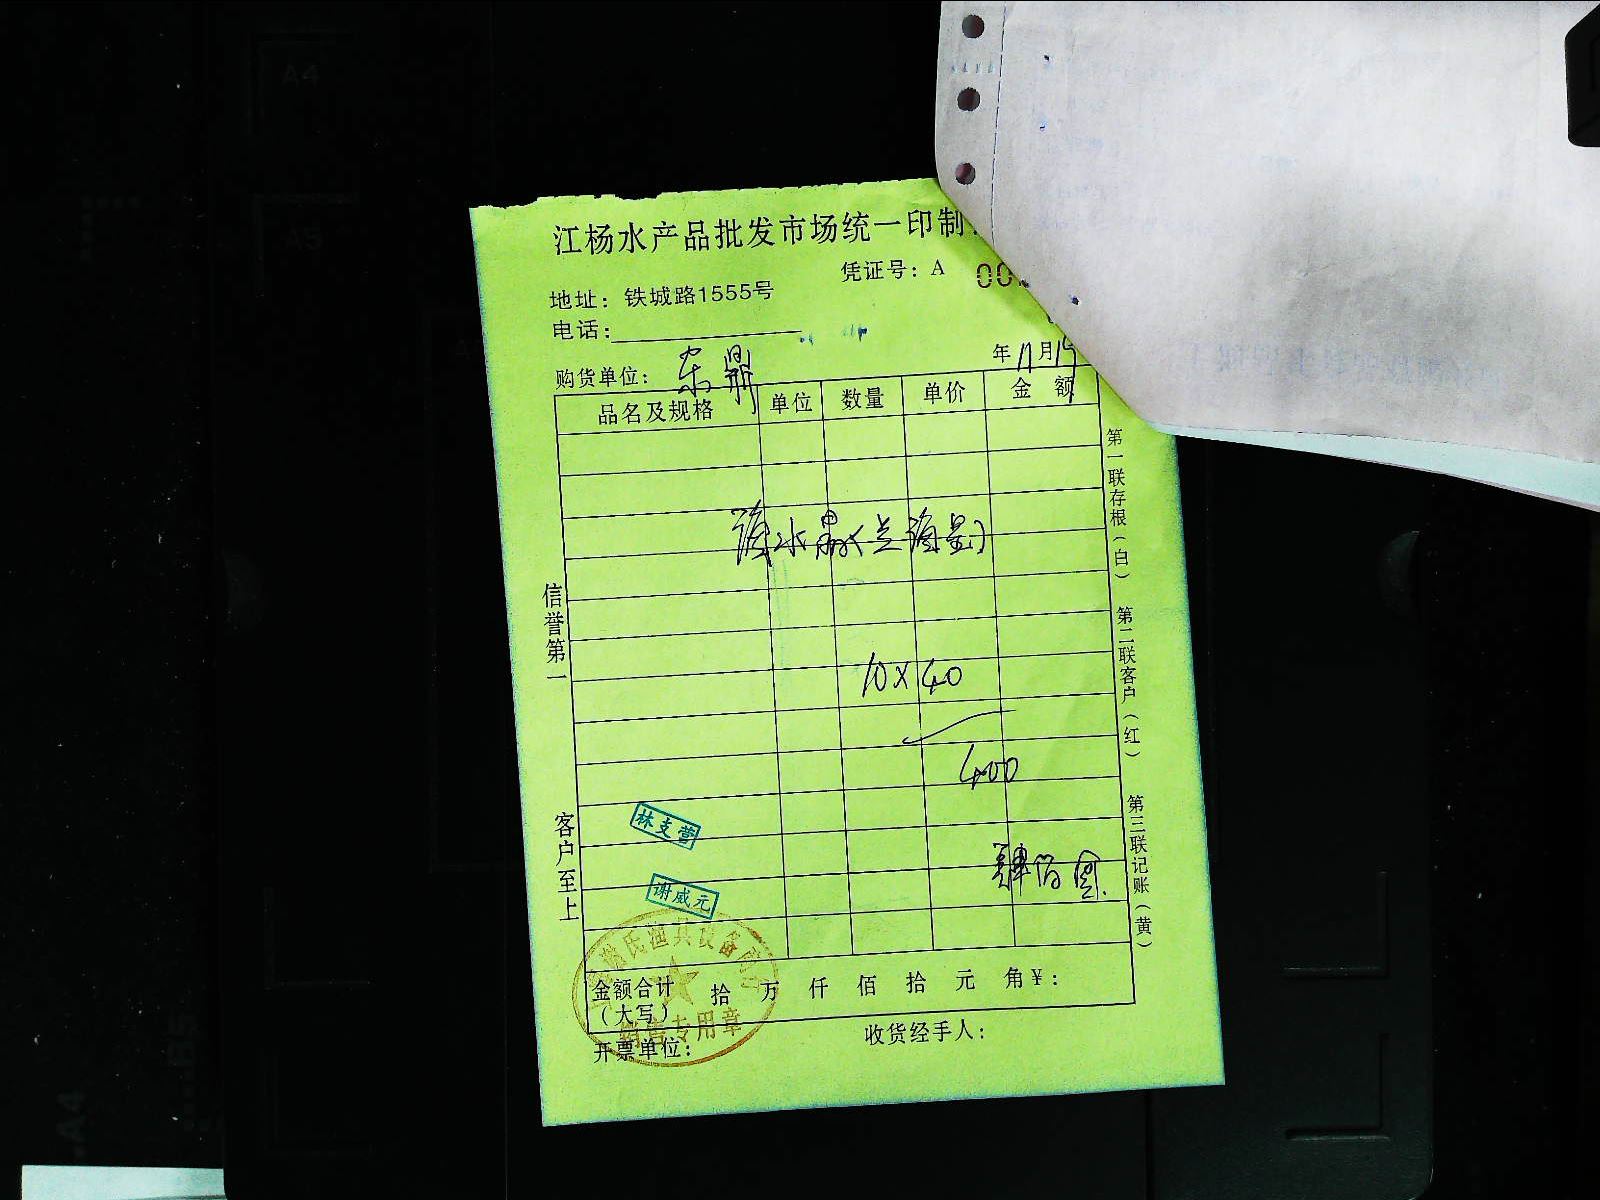 江杨水产品批发市场统一印制
凭证号：A 00
地址：铁城路1555号
电话：
购货单位：东鼎
年11月19
品名及规格 单位 数量 单价 金额
10×40
400
肆佰圆
林支营
谢威元
金额合计（大写） 拾 万 仟 佰 拾 元 角 ¥：
开票单位：
收货经手人：
销售专用章
信誉第一
客户至上
第一联存根（白）
第二联客户（红）
第三联记账（黄）
A4
A5
A4
B5